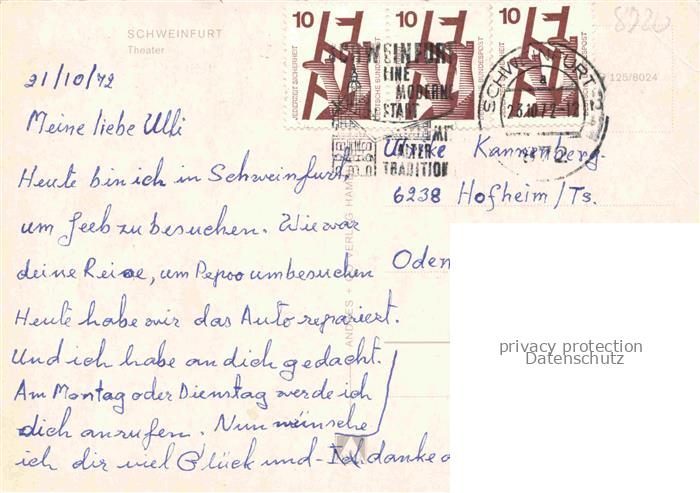 SCHWEINFURT
Theater
10
10
10
JEDERZEIT SICHERHEIT
DEUTSCHE BUNDESPOST
8720
125/8024
SCHWEINFURT
EINE
MODERNE
STADT
MIT
ALTER
TRADITION
SCHWEINFURT
a
23.10.72-1
872
21/10/72
Meine liebe Ulli
Heute bin ich in Schweinfurt,
um Seeb zu besuchen. Wie war
deine Reise, um Pepoo umbesuchen
Heute habe wir das Auto repariert.
Und ich habe an dich gedacht.
Am Montag oder Dienstag werde ich
dich anrufen. Nun wünsche
ich dir viel Glück und - Ich danke
Ulrike Kannenberg
6238 Hofheim/Ts.
Oden
VERLAG HAM
privacy protection
Datenschutz